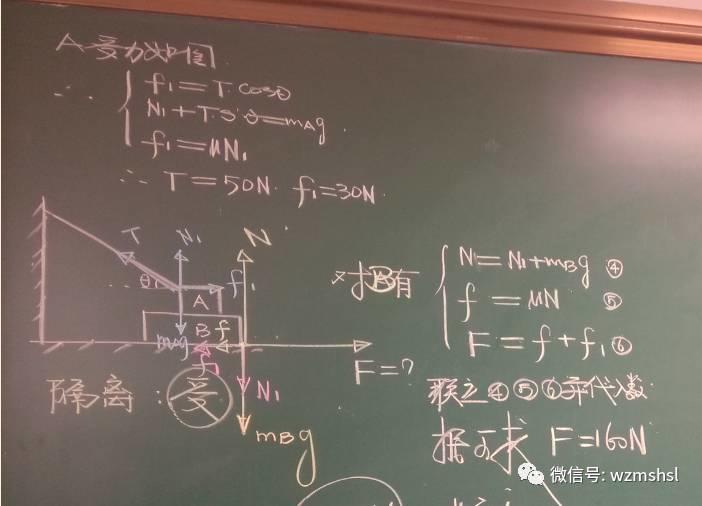 A受力如图
∴ { f₁=T.cosθ
N₁+T.sinθ=mAg.
f₁=μN₁
∴ T=50N. f₁=30N.
T N₁ N
θ f₁
A
B f
mAg
f₁
F=?
N₁
mBg
隔离: 受
对B有 { N=N₁+mBg ④
f=μN ⑤
F=f+f₁ ⑥
联立④⑤⑥并代入数
据可求 F=160N
微信号: wzmshsl